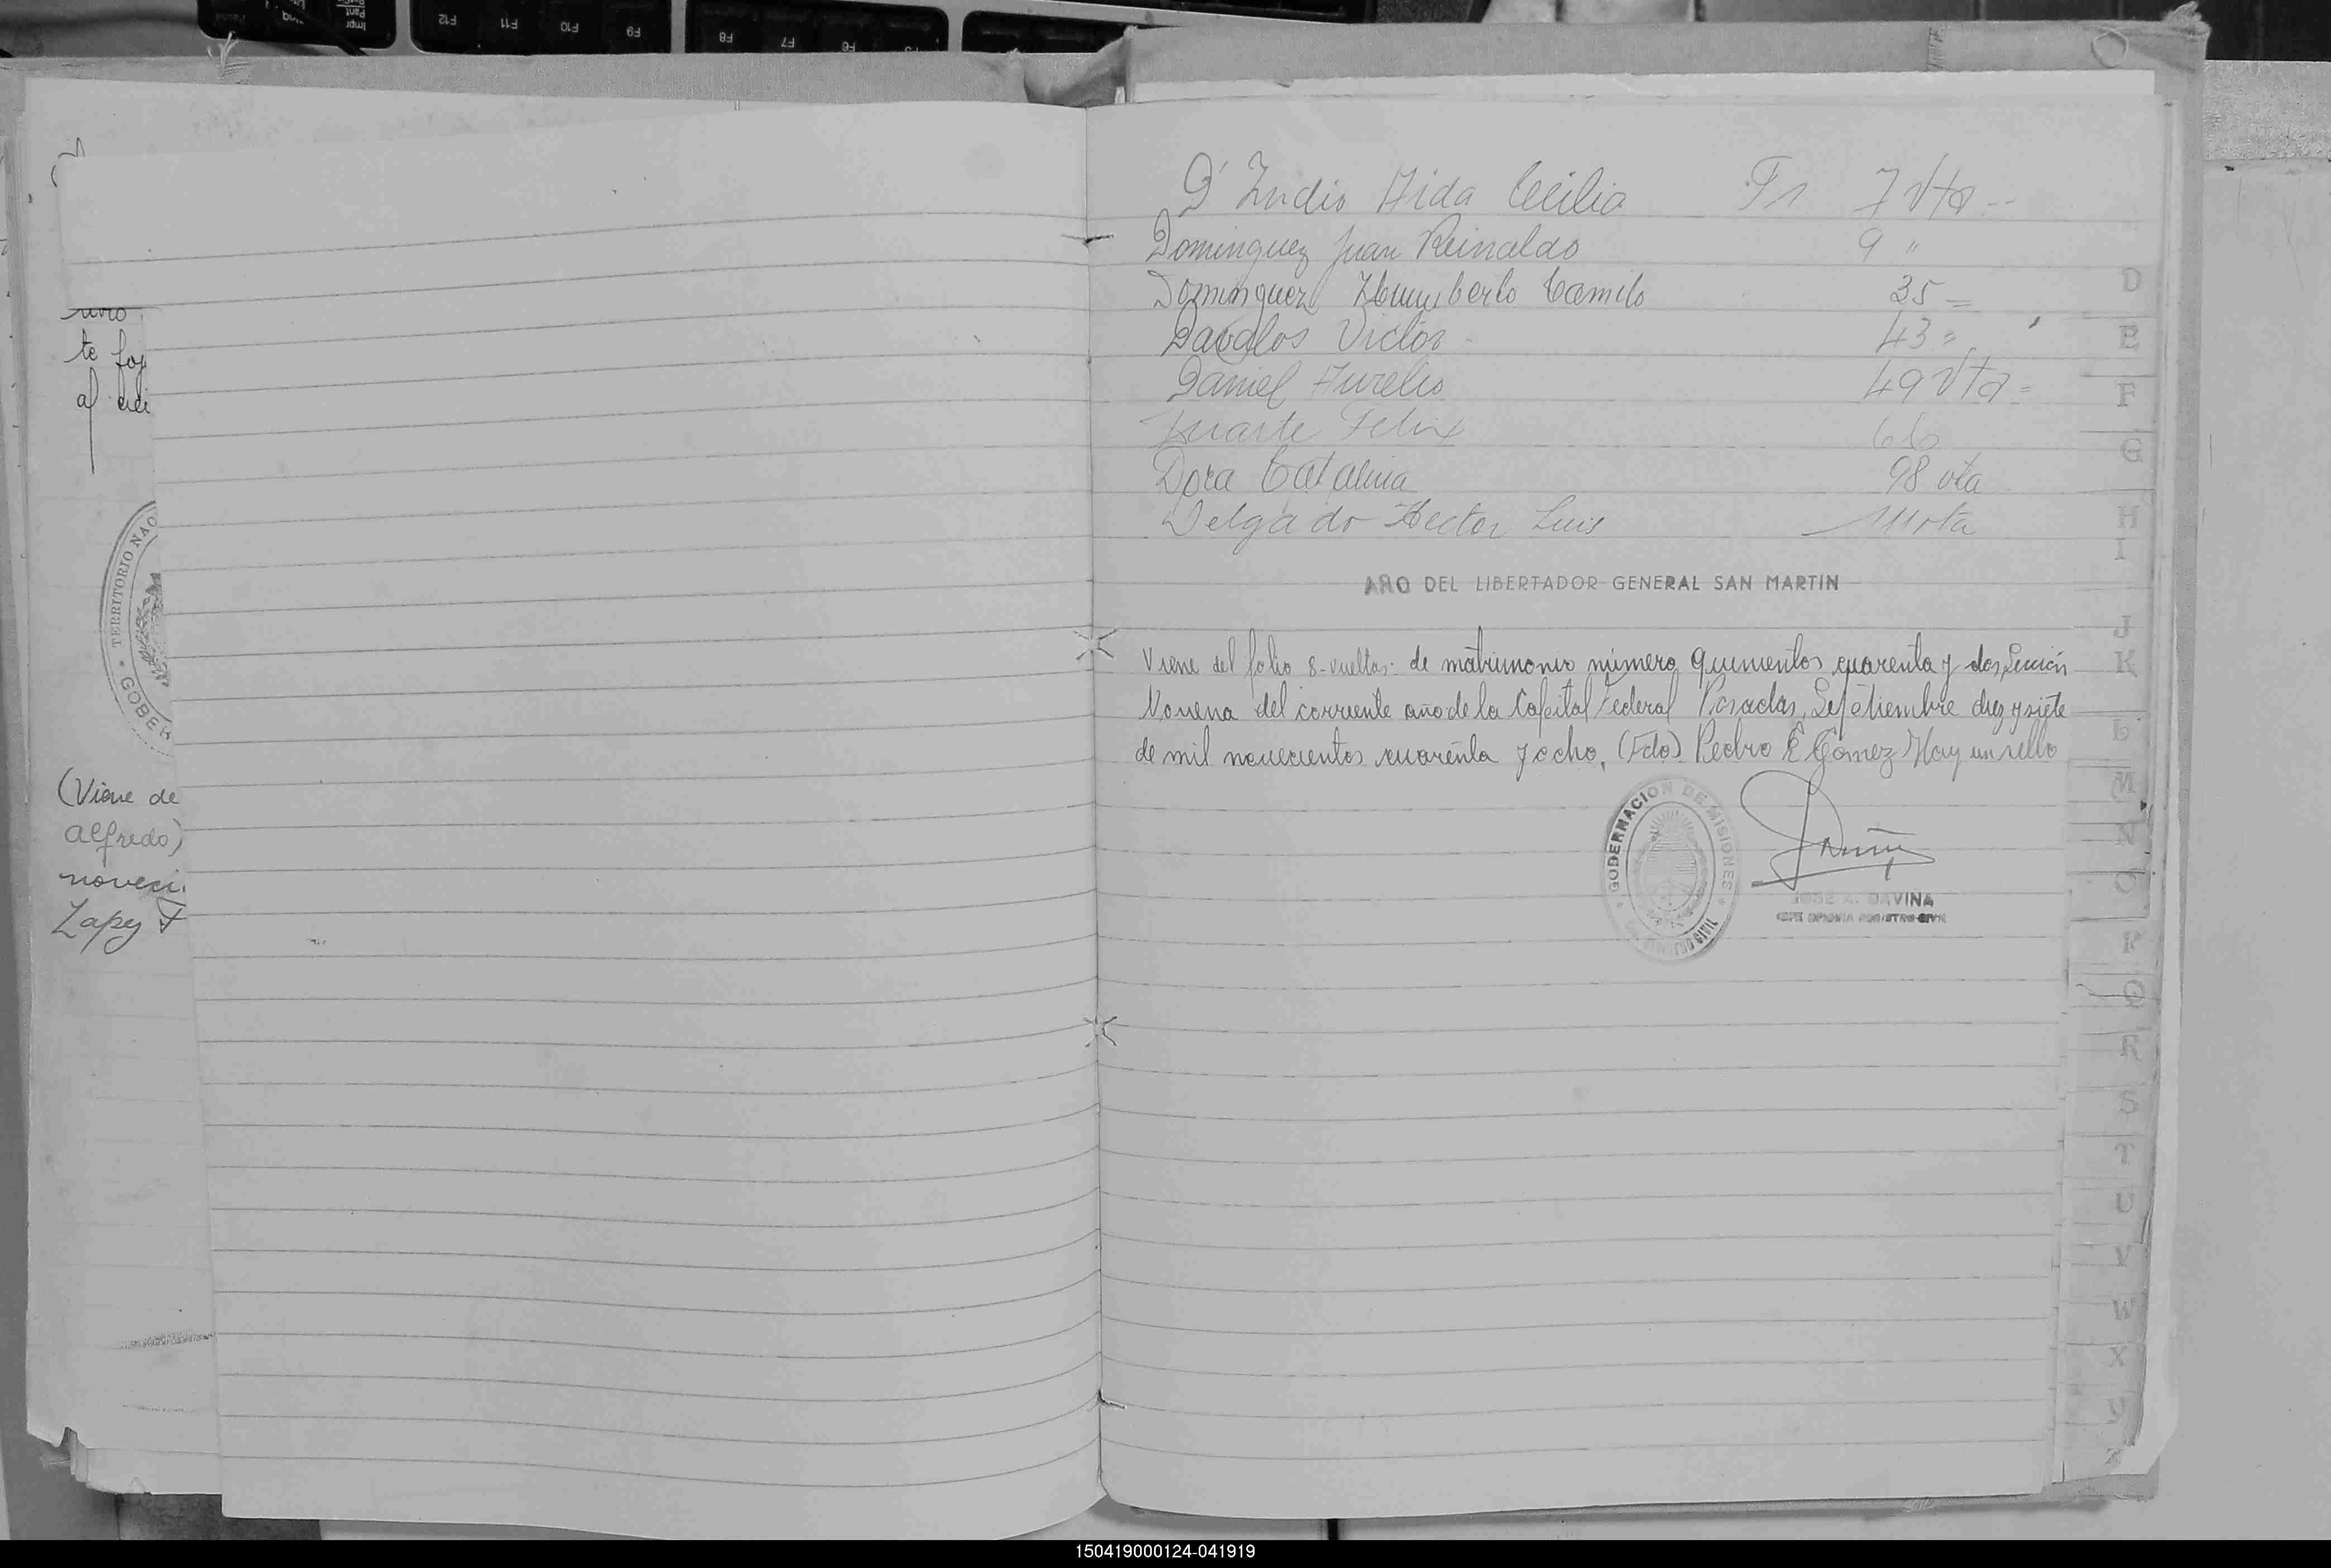 te foj
al
TERRITORIO NAC
GOBER
(Viene de
Alfredo)
noveci
Zapey
D'Indio Aida Cecilia Fs 7 Vta --
Dominguez Juan Reinaldo 9 "
Dominguez Humberto Camilo 35 =
Davalos Victor - 43 =
Daniel Aurelio 49 Vta =
Duarte Felix 66
Dora Catalina 98 vta
Delgado Hector Luis 111 vta
AÑO DEL LIBERTADOR GENERAL SAN MARTIN
Viene del folio 8-vuelta: de matrimonio número quinientos cuarenta y dos, Sección
Novena del corriente año de la Capital Federal Posadas, Setiembre diez y siete
de mil novecientos cuarenta y ocho, (Fdo) Pedro E Gomez Hay un sello
GOBERNACION DE MISIONES
JOSE A. DAVIÑA
JEFE OFICINA REGISTRO CIVIL
D
E
F
G
H
I
J
K
L
M
N
O
P
Q
R
S
T
U
V
W
X
Z
150419000124-041919